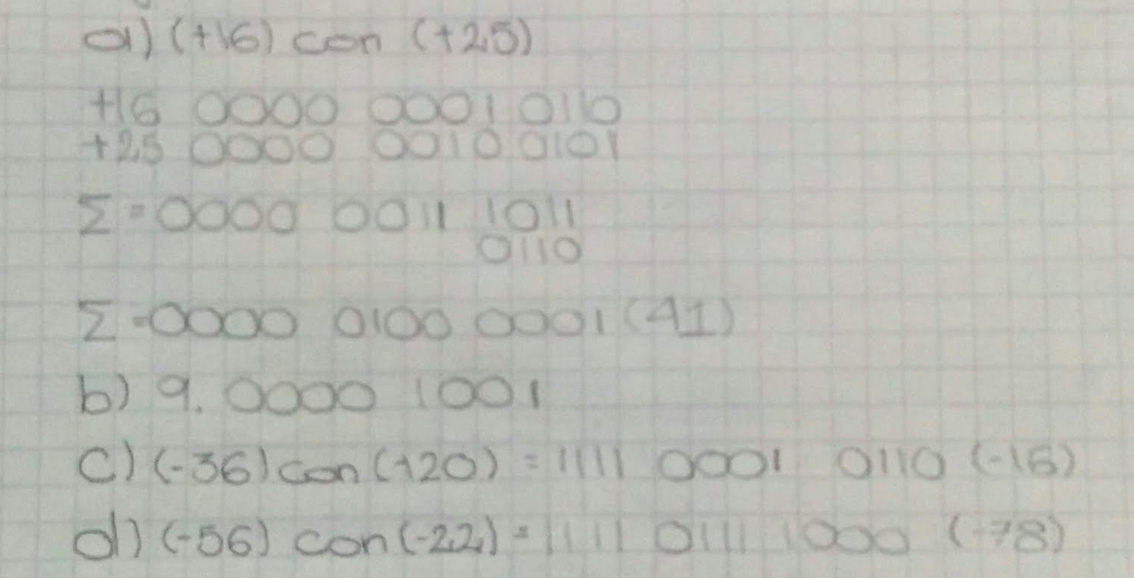 a) (+16) con (+25)
+16 0000 0001 0110
+25 0000 0010 0101
Σ = 0000 0011 1011
0110
Σ = 0000 0100 0001 (41)
b) 9. 0000 1001
c) (-36) con (+20) = 1111 0001 0110 (-16)
d) (-56) con (-22) = 1111 0111 1000 (-78)